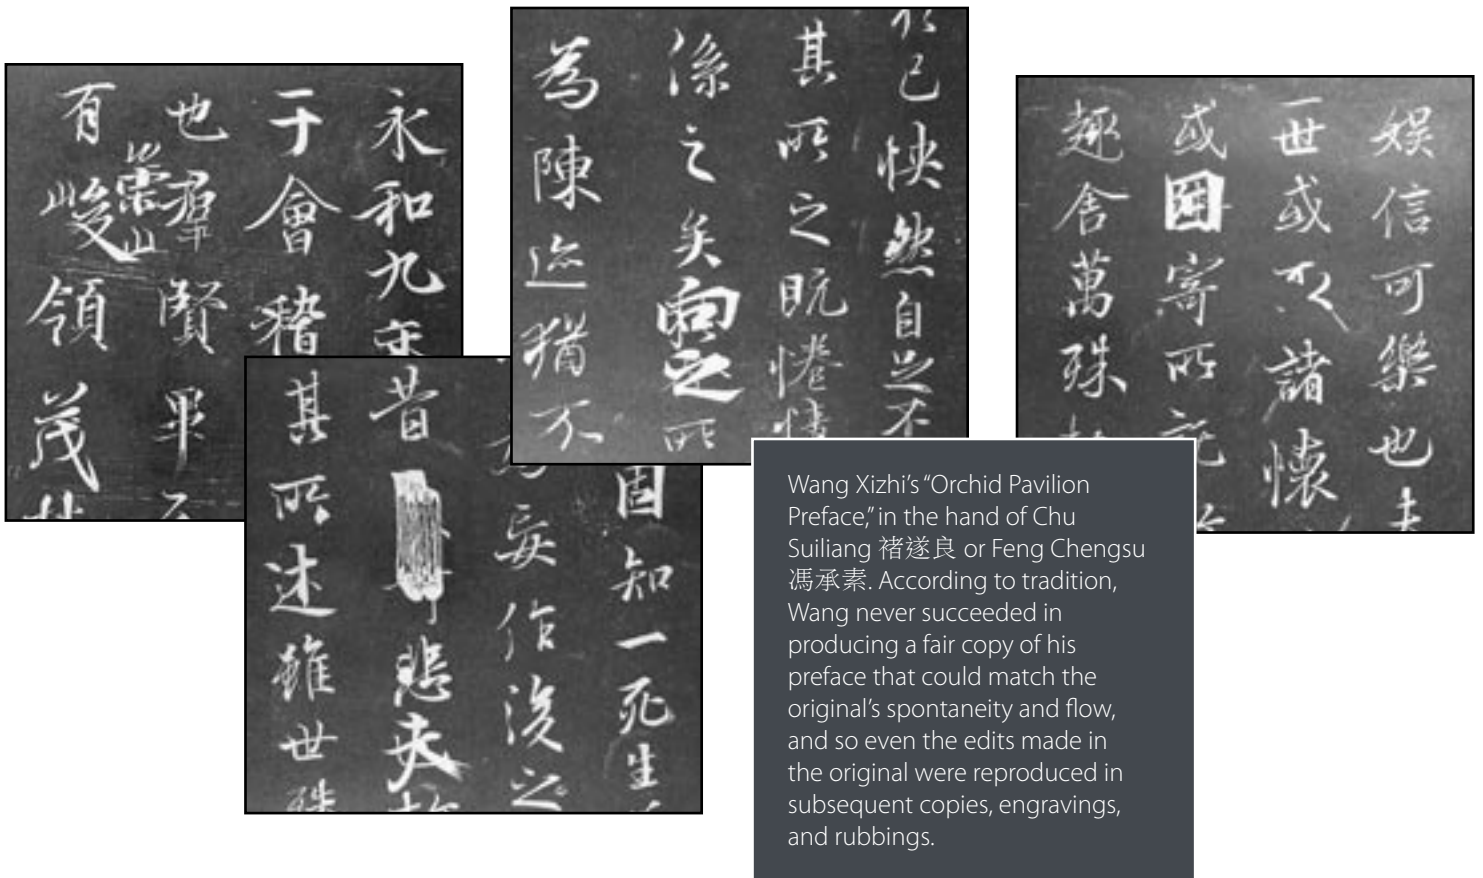 永和九年
于會稽
也羣賢畢
有崇山峻領茂
於己怏然自足不
其所之既惓情
係之矣向之所
為陳迹猶不
固知一死生
妄作後之
昔悲夫
其所述雖世殊
娛信可樂也夫
一世或取諸懷
或因寄所託
趣舍萬殊
Wang Xizhi's “Orchid Pavilion
Preface,” in the hand of Chu
Suiliang 褚遂良 or Feng Chengsu
馮承素. According to tradition,
Wang never succeeded in
producing a fair copy of his
preface that could match the
original's spontaneity and flow,
and so even the edits made in
the original were reproduced in
subsequent copies, engravings,
and rubbings.